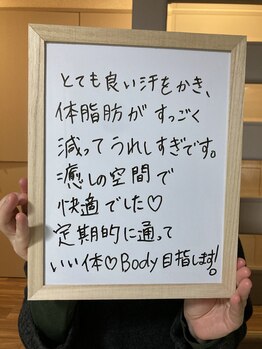 とても良い汗をかき、
体脂肪がすっごく
減ってうれしすぎです。
癒しの空間で
快適でした♡
定期的に通って
いい体♡Body目指します!